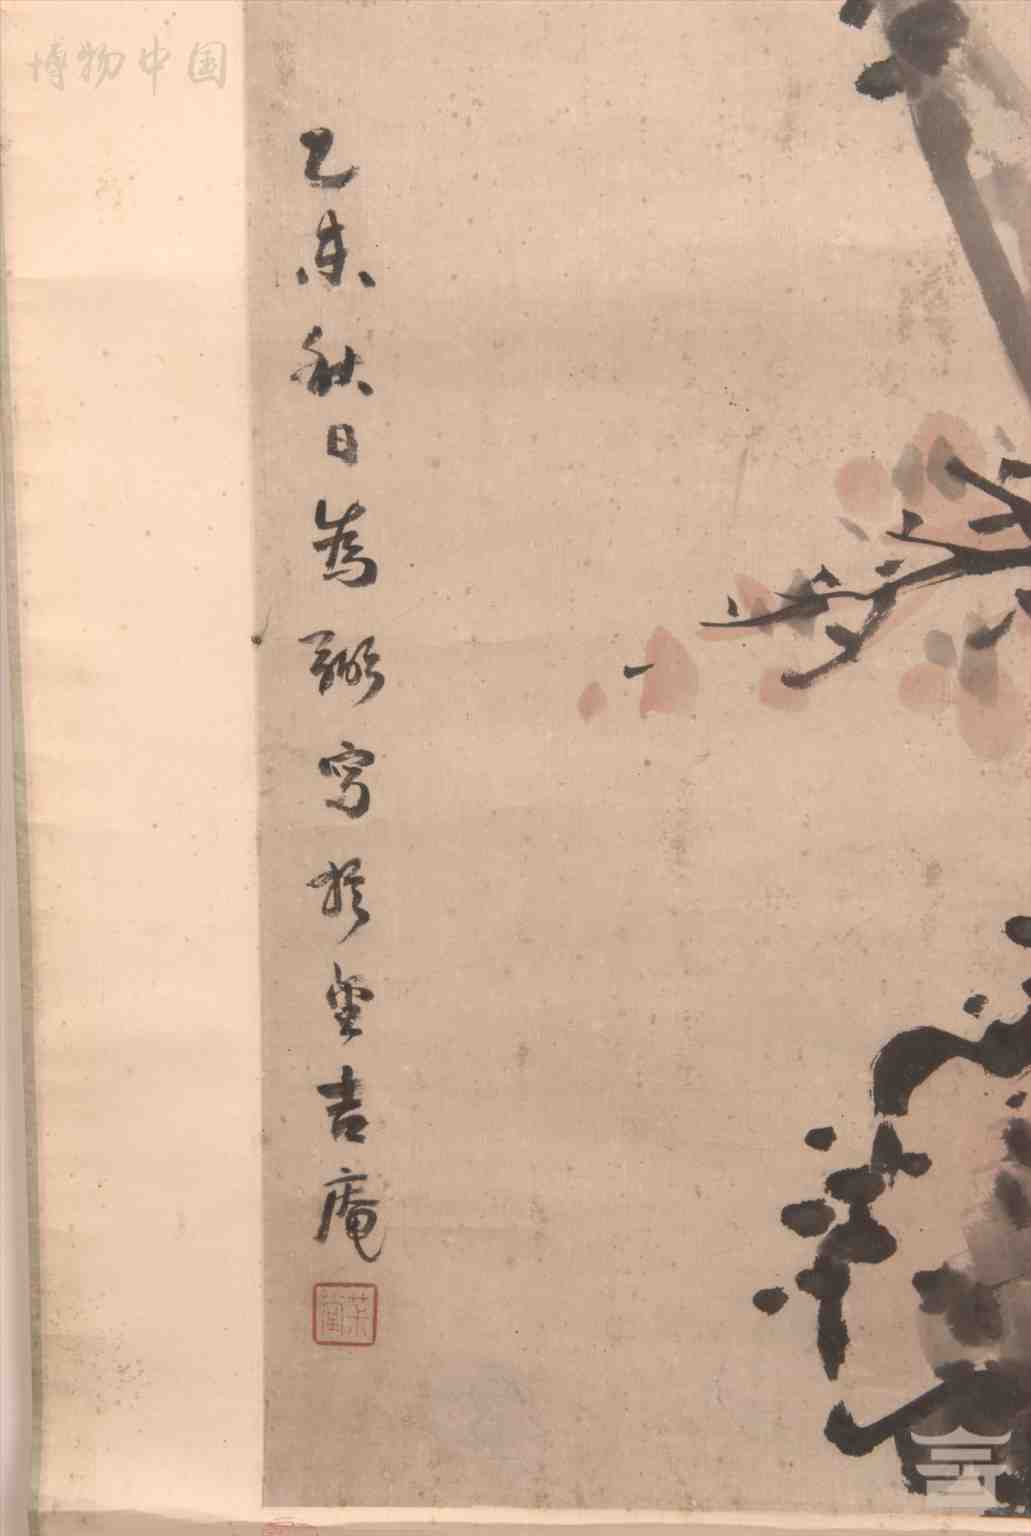 博物中国
乙未秋日為
寫於聖吉庵